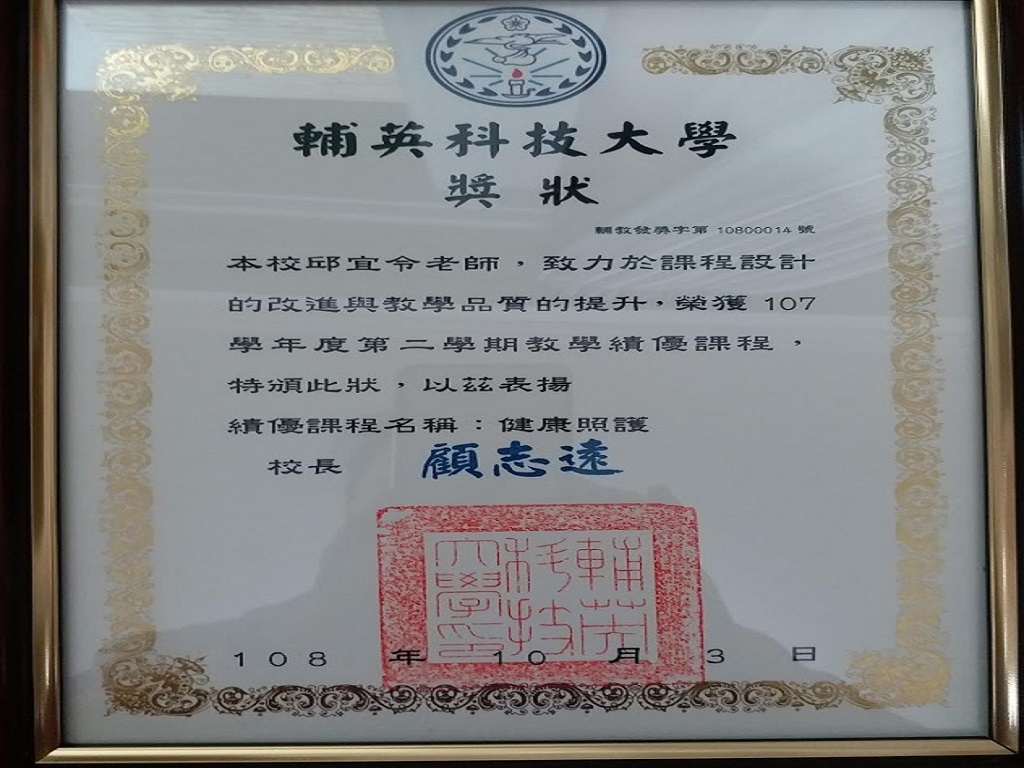 輔英科技大學
獎狀
輔教發獎字第 10800014 號
本校邱宜令老師，致力於課程設計
的改進與教學品質的提升，榮獲 107
學年度第二學期教學績優課程，
特頒此狀，以茲表揚
績優課程名稱：健康照護
校長 顧志遠
輔英科技大學印
108 年 10 月 3 日